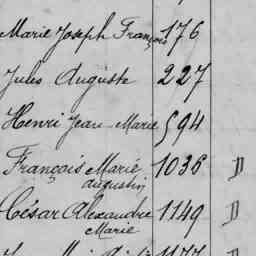 Marie Joseph François 176
Jules Auguste 227
Henri Jean-Marie 594
François Marie 1036 D
augustin
César Alexandre 1149 D
Marie
1177 D